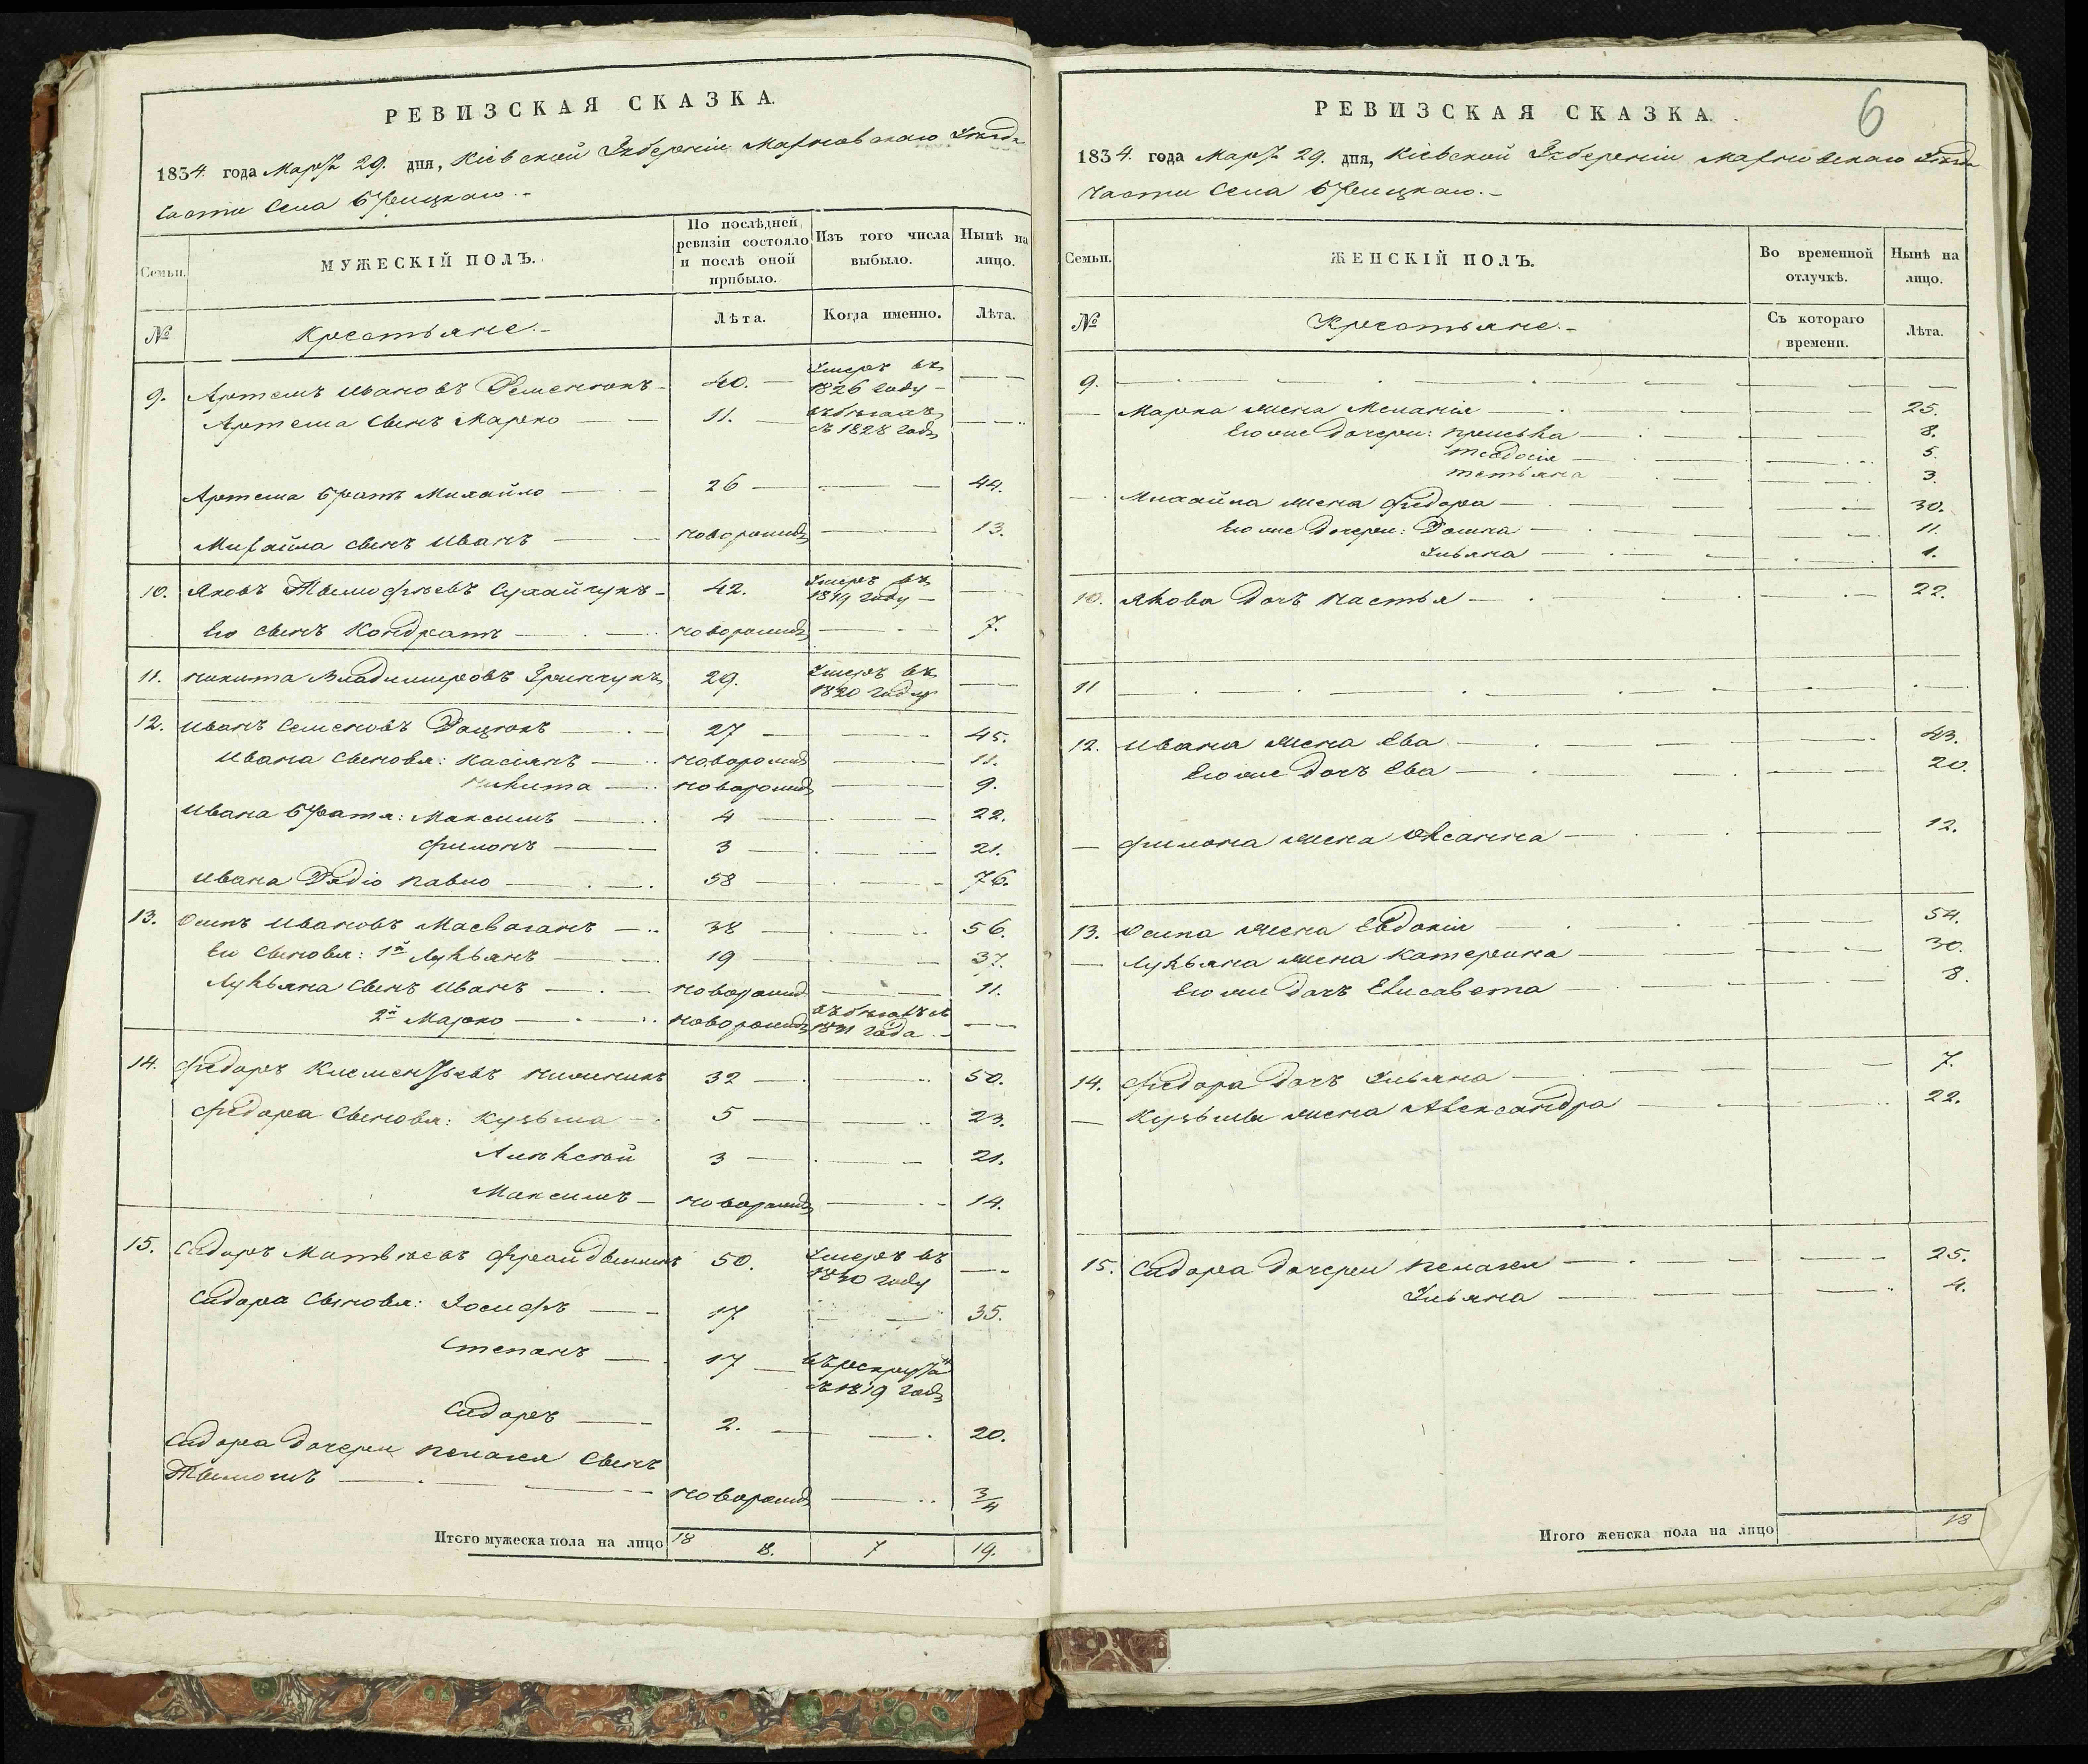 РЕВИЗСКАЯ СКАЗКА.
1834 года Марта 29. дня, Кіевской Губерніи Махновскаго Уезда
части Села Брицкаго.-
Семьи.
МУЖЕСКІЙ ПОЛЪ.
По послѣдней ревизіи состояло и послѣ оной прибыло.
Изъ того числа выбыло.
Нынѣ на лицо.
№
Крестьяне.-
Лѣта.
Когда именно.
Лѣта.
9. Артемъ Ивановъ 40. Умеръ въ 1826 году
Артема Сынъ Марко 11. въ бѣгахъ съ 1828 года
Артема братъ Михайло 26 44.
Михайла сынъ Иванъ новорожд 13.
10. Яковъ Тымофѣевъ 42. Умеръ въ году
Его Сынъ Кондратъ новорожд 7.
11. Никита Владимировъ Гринчукъ 29. Умеръ въ 1820 году
12. Иванъ Семеновъ Дацюкъ 27 45.
Ивана Сыновя: Касіянъ новорожд 11.
Никита новорожд 9.
Ивана братя: Максимъ 4 22.
Филонъ 3 21.
Ивана Дядю Павло 58 76.
13. Осипъ Ивановъ 38 56.
Его Сыновя: 1й Лукьянъ 19 37.
Лукьяна Сынъ Иванъ новорожд 11.
2й Марко новорожд въ бѣгахъ съ 1831 года
14. Федоръ Клементьевъ 32 50.
Федора Сыновя: Кузьма 5 23.
Алексѣй 3 21.
Максимъ новорожд 14.
15. Сидоръ Матвѣевъ 50. Умеръ въ 1830 году
Сидора Сыновя: Іосифъ 17 35.
Степанъ 17 въ рекрута съ 1819 года
Сидоръ 2. 20.
Сидора дочери Пелагеи Сынъ
Тымошъ новорожд 3/4
Итого мужеска пола на лицо 18 8. 7 19.
6
РЕВИЗСКАЯ СКАЗКА.
1834. года Марта 29. дня, Кіевской Губерніи Махновскаго Уезда
части Села Брицкаго.-
Семьи.
ЖЕНСКІЙ ПОЛЪ.
Во временной отлучкѣ.
Нынѣ на лицо.
№
Крестьяне.-
Съ котораго времени.
Лѣта.
9.
Марка жена Меланія 25.
Его же дочери: Приська 8.
Теодосія 5.
Тетьяна 3.
Михайла жена Федора 30.
Его же дочери: Домка 11.
Ульяна 1.
10. Якова дочъ Настья 22.
11
12. Ивана жена Ева 43.
Его же дочъ Ева 20.
Филона жена Оксанна 12.
13. Осипа жена Евдокія 54.
Лукьяна жена Катерина 30.
Его же дочъ Елисавета 8.
14. Федора дочъ Ульяна 7.
Кузьмы жена Александра 22.
15. Сидора дочери Пелагея 25.
Ульяна 4.
Итого женска пола на лицо 18